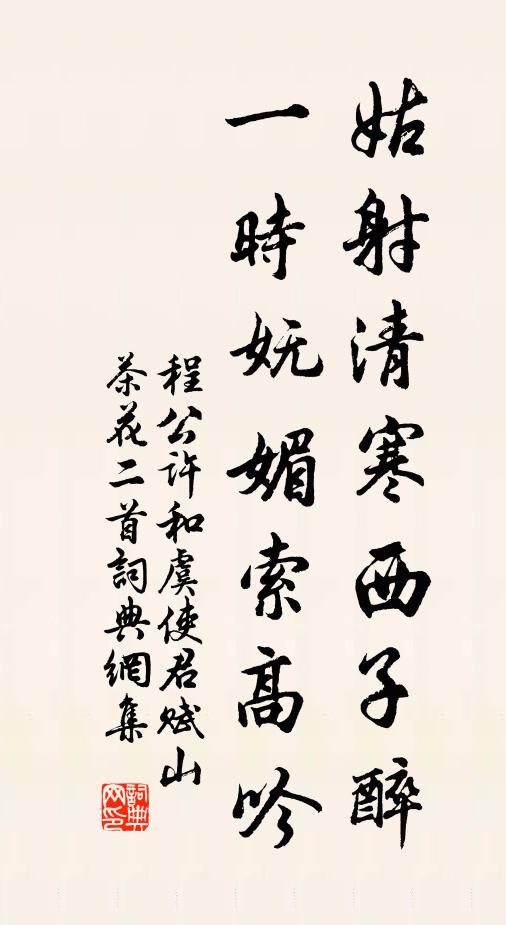 姑射清寒西子醉
一時妩媚索高吟
程公许和虞使君赋山
茶花二首詞典網集
詞典
网印